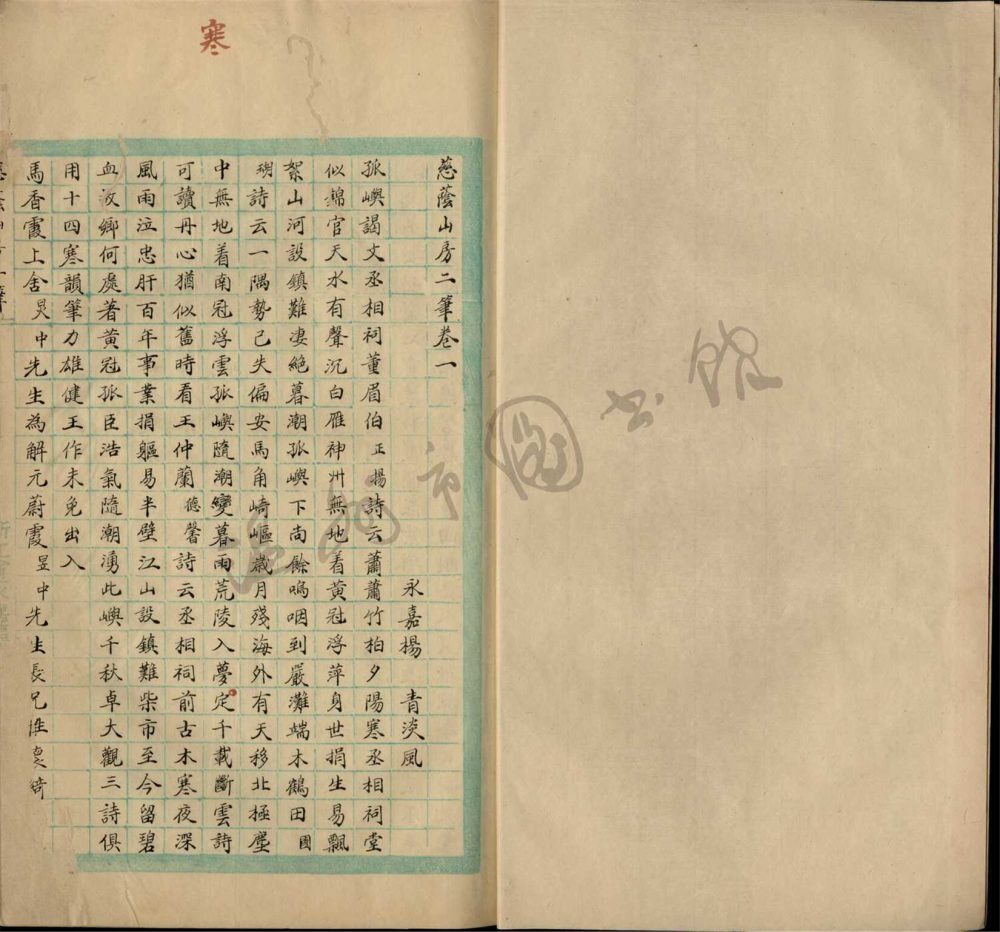 寒
慈蔭山房二筆卷一
永嘉楊青淡風
孤嶼謁文丞相祠董眉伯正揚詩云蕭蕭竹柏夕陽寒丞相祠堂
似錦官天水有聲沉白雁神州無地着黃冠浮萍身世捐生易飄
絮山河設鎮難凄絕暮潮孤嶼下尚餘嗚咽到嚴灘端木鶴田國
瑚詩云一隅勢已失偏安馬角崎嶇歲月殘海外有天移北極塵
中無地着南冠浮雲孤嶼隨潮變暮雨荒陵入夢定千載斷雲詩
可讀丹心猶似舊時看王仲蘭德馨詩云丞相祠前古木寒夜深
風雨泣忠肝百年事業捐軀易半壁江山設鎮難柴市至今留碧
血故鄉何處著黃冠孤臣浩氣隨潮湧此嶼千秋卓大觀三詩俱
用十四寒韻筆力雄健王作未免出入
馬香霞上舍炅中先生為解元蔚霞昱中先生長兄
溫州市圖書館